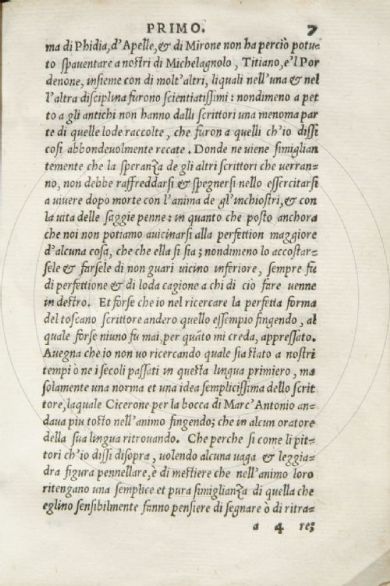 PRIMO. 7
ma di Phidia, d'Apelle, & di Mirone non ha perciò potuo
to spauentare a nostri di Michelagnolo, Titiano, e'l Por
denone, insieme con di molt'altri, liquali nell'una & nel
l'altra disciplina furono scientiatissimi: nondimeno a pet
to a gli antichi non hanno dalli scrittori una menoma par
te di quelle lode raccolte, che furon a quelli ch'io dissi
cosi abbondeuolmente recate. Donde ne viene simiglian
temente che la speranza de gli altri scrittori che uerran=
no, non debbe raffreddarsi & spegnersi nello essercitarsi
a uiuere dopo morte con l'anima de gl'inchiostri, & con
la uita delle saggie penne: in quanto che posto anchora
che noi non potiamo auicinarsi alla perfettion maggiore
d'alcuna cosa, che che ella si sia; nondimeno lo accostar=
sele & farsele di non guari uicino inferiore, sempre fu
di perfettione & di loda cagione a chi di ciò fare uenne
in destro. Et forse che io nel ricercare la perfetta forma
del toscano scrittore andero quello essempio fingendo, al
quale forse niuno fu mai, per quāto mi creda, appressato.
Auegna che io non uo ricercando quale sia stato a nostri
tempi ò ne i secoli passati in questa lingua primiero, ma
solamente una norma et una idea semplicissima dello scrit
tore, laquale Cicerone per la bocca di Marc'Antonio an=
daua piu tosto nell'animo fingendo; che in alcun oratore
della sua lingua ritrouando. Che perche si come li pit=
tori ch'io dissi disopra, uolendo alcuna uaga & leggia=
dra figura pennellare, è di mestiere che nell'animo loro
ritengano una semplice et pura simiglianza di quella che
eglino sensibilmente fanno pensiere di segnare ò di ritra=
a 4 re;